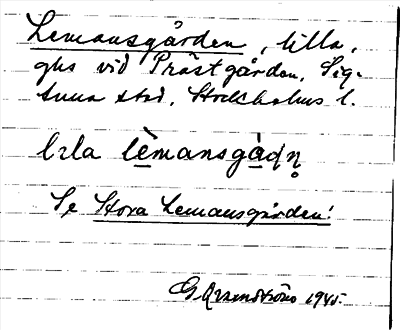 Lemansgården, lilla,
ghs vid Prästgården, Sig-
tuna stad, Stockholms l.
lɩla lèmansgàḍṇ
Se Stora Lemansgården!
G Arvmströms 1945.